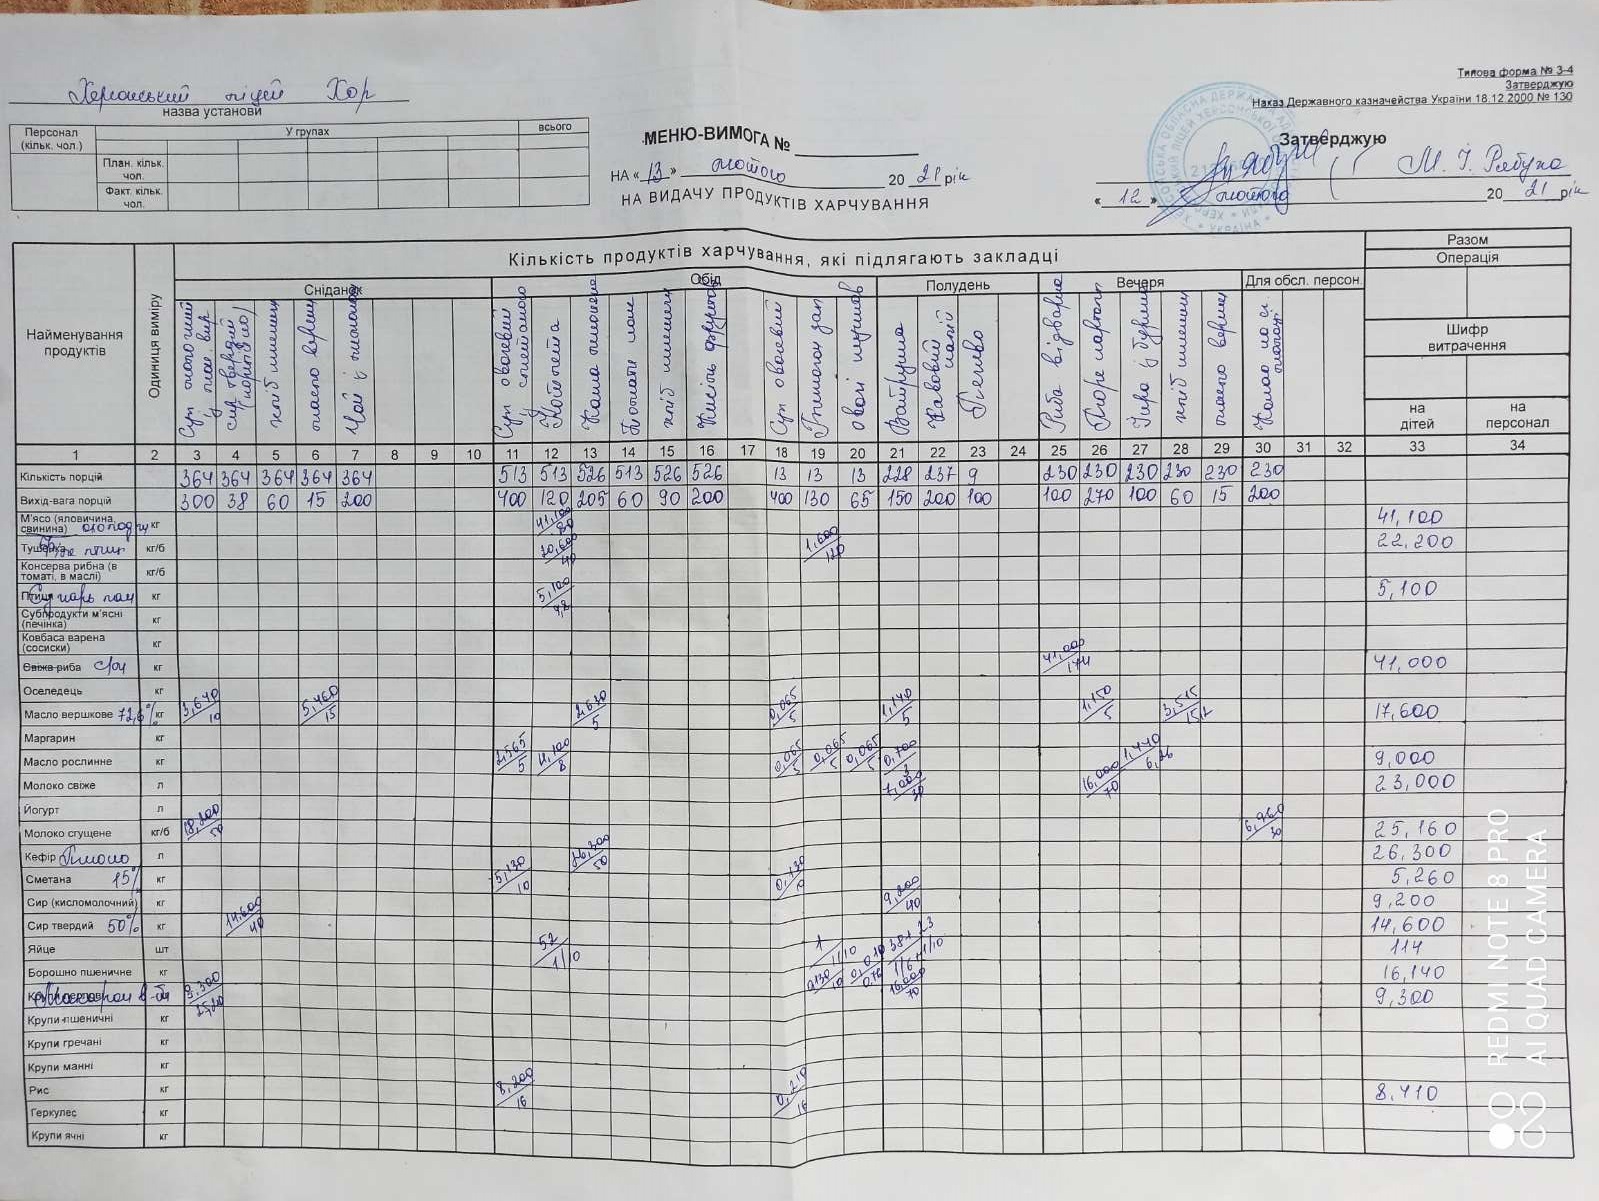 Типова форма № З-4
Затверджую
Наказ Державного казначейства України 18.12.2000 № 130
Херсонський ліцей ХОР
назва установи
Персонал (кільк. чол.) У групах всього
План. кільк. чол.
Факт. кільк. чол.
МЕНЮ-ВИМОГА №
НА «13» лютого 2021 рік
НА ВИДАЧУ ПРОДУКТІВ ХАРЧУВАННЯ
Затверджую
«12» лютого 2021 рік
Найменування продуктів
Одиниця виміру
Кількість продуктів харчування, які підлягають закладці
Разом
Операція
Шифр витрачення
на дітей
на персонал
Сніданок Обід Полудень Вечеря Для обсл. персон
Суп молочний
сир твердий
хліб пшенич
масло верш
Чай з лимоном
Суп овочевий
Котлета
Каша
хліб пшенич
Суп овочевий
Ватрушка
Печиво
Риба відварна
Пюре картоп
хліб пшенич
масло верш
1 2 3 4 5 6 7 8 9 10 11 12 13 14 15 16 17 18 19 20 21 22 23 24 25 26 27 28 29 30 31 32 33 34
Кількість порцій 364 364 364 364 364 513 513 526 513 526 526 13 13 13 228 237 9 230 230 230 230 230 230
Вихід-вага порцій 300 38 60 15 200 400 120 205 60 90 200 400 130 65 150 200 100 100 270 100 60 15 200
М'ясо (яловичина, свинина) кг 41,100/80 41,100
Тушонка кг/б 20,600/40 1,600/120 22,200
Консерва рибна (в томаті, в маслі) кг/б
Птиця кг 5,100 5,100
Субпродукти м'ясні (печінка) кг
Ковбаса варена (сосиски) кг
Свіжа риба с/м кг 41,000/174 41,000
Оселедець кг
Масло вершкове 72,6% кг 3,640/10 5,460/15 2,630/5 0,065/5 1,140/5 1,150/5 17,600
Маргарин кг
Масло рослинне кг 2,565/5 4,100/8 0,065/5 0,065/5 0,065/5 0,700/3 1,440 9,000
Молоко свіже л 7,000/30 16,000/70 23,000
Йогурт л
Молоко сгущене кг/б 18,200/50 6,960/30 25,160
Кефір л 26,300/50 26,300
Сметана 15% кг 5,130/10 0,130/10 5,260
Сир (кисломолочний) кг 9,200/40 9,200
Сир твердий 50% кг 14,600/40 14,600
Яйце шт 52 1/10 1 1/10 114
Борошно пшеничне кг 16,000/70 16,140
Макарон кг 9,300 9,300
Крупи пшеничні кг
Крупи гречані кг
Крупи манні кг
Рис кг 8,200/16 0,210/16 8,410
Геркулес кг
Крупи ячні кг
REDMI NOTE 8 PRO
AI QUAD CAMERA